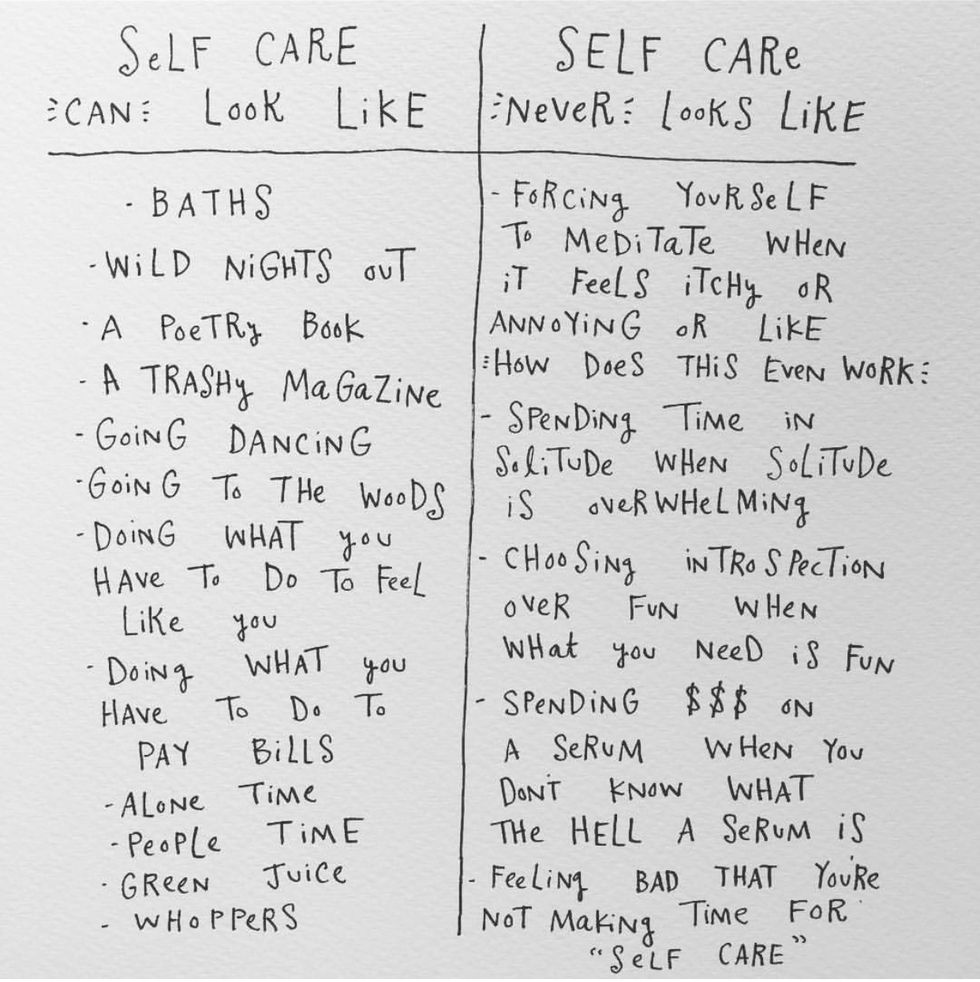 SeLF CARE
CAN LooK LiKE
- BATHS
- WiLD NiGHTS ouT
- A PoeTRy Book
- A TRASHy MaGaZiNE
- GoiNG DANCiNG
- GoiNG To THe WooDS
- DoiNG WHAT you
HAve To Do To FeeL
LiKe you
- DoiNg WHAT you
HAVe To Do To
PAY BiLLS
- ALoNe TiMe
- PeoPLe TiME
- GReeN JuiCe
- WHoPPeRS
SELF CARe
NeveR LooKS LiKE
- FoRCiNg YouRSeLF
To MeDiTaTe WHeN
iT FeeLS iTCHy oR
ANNoYiNG oR LiKE
HoW DoeS THiS EveN WoRK
- SPeNDiNg TiMe iN
SoLiTuDe WHeN SoLiTuDe
iS oveRWHeLMiNg
- CHooSiNg iNTRoSPeCTioN
oveR FuN WHeN
WHat you NeeD iS FuN
- SPeNDiNG $$$ oN
A SeRuM WHeN You
DoN'T KNoW WHAT
THe HeLL A SeRuM iS
- FeeLiNg BAD THAT You'Re
NoT MakiNg TiMe FoR
“SeLF CARe”